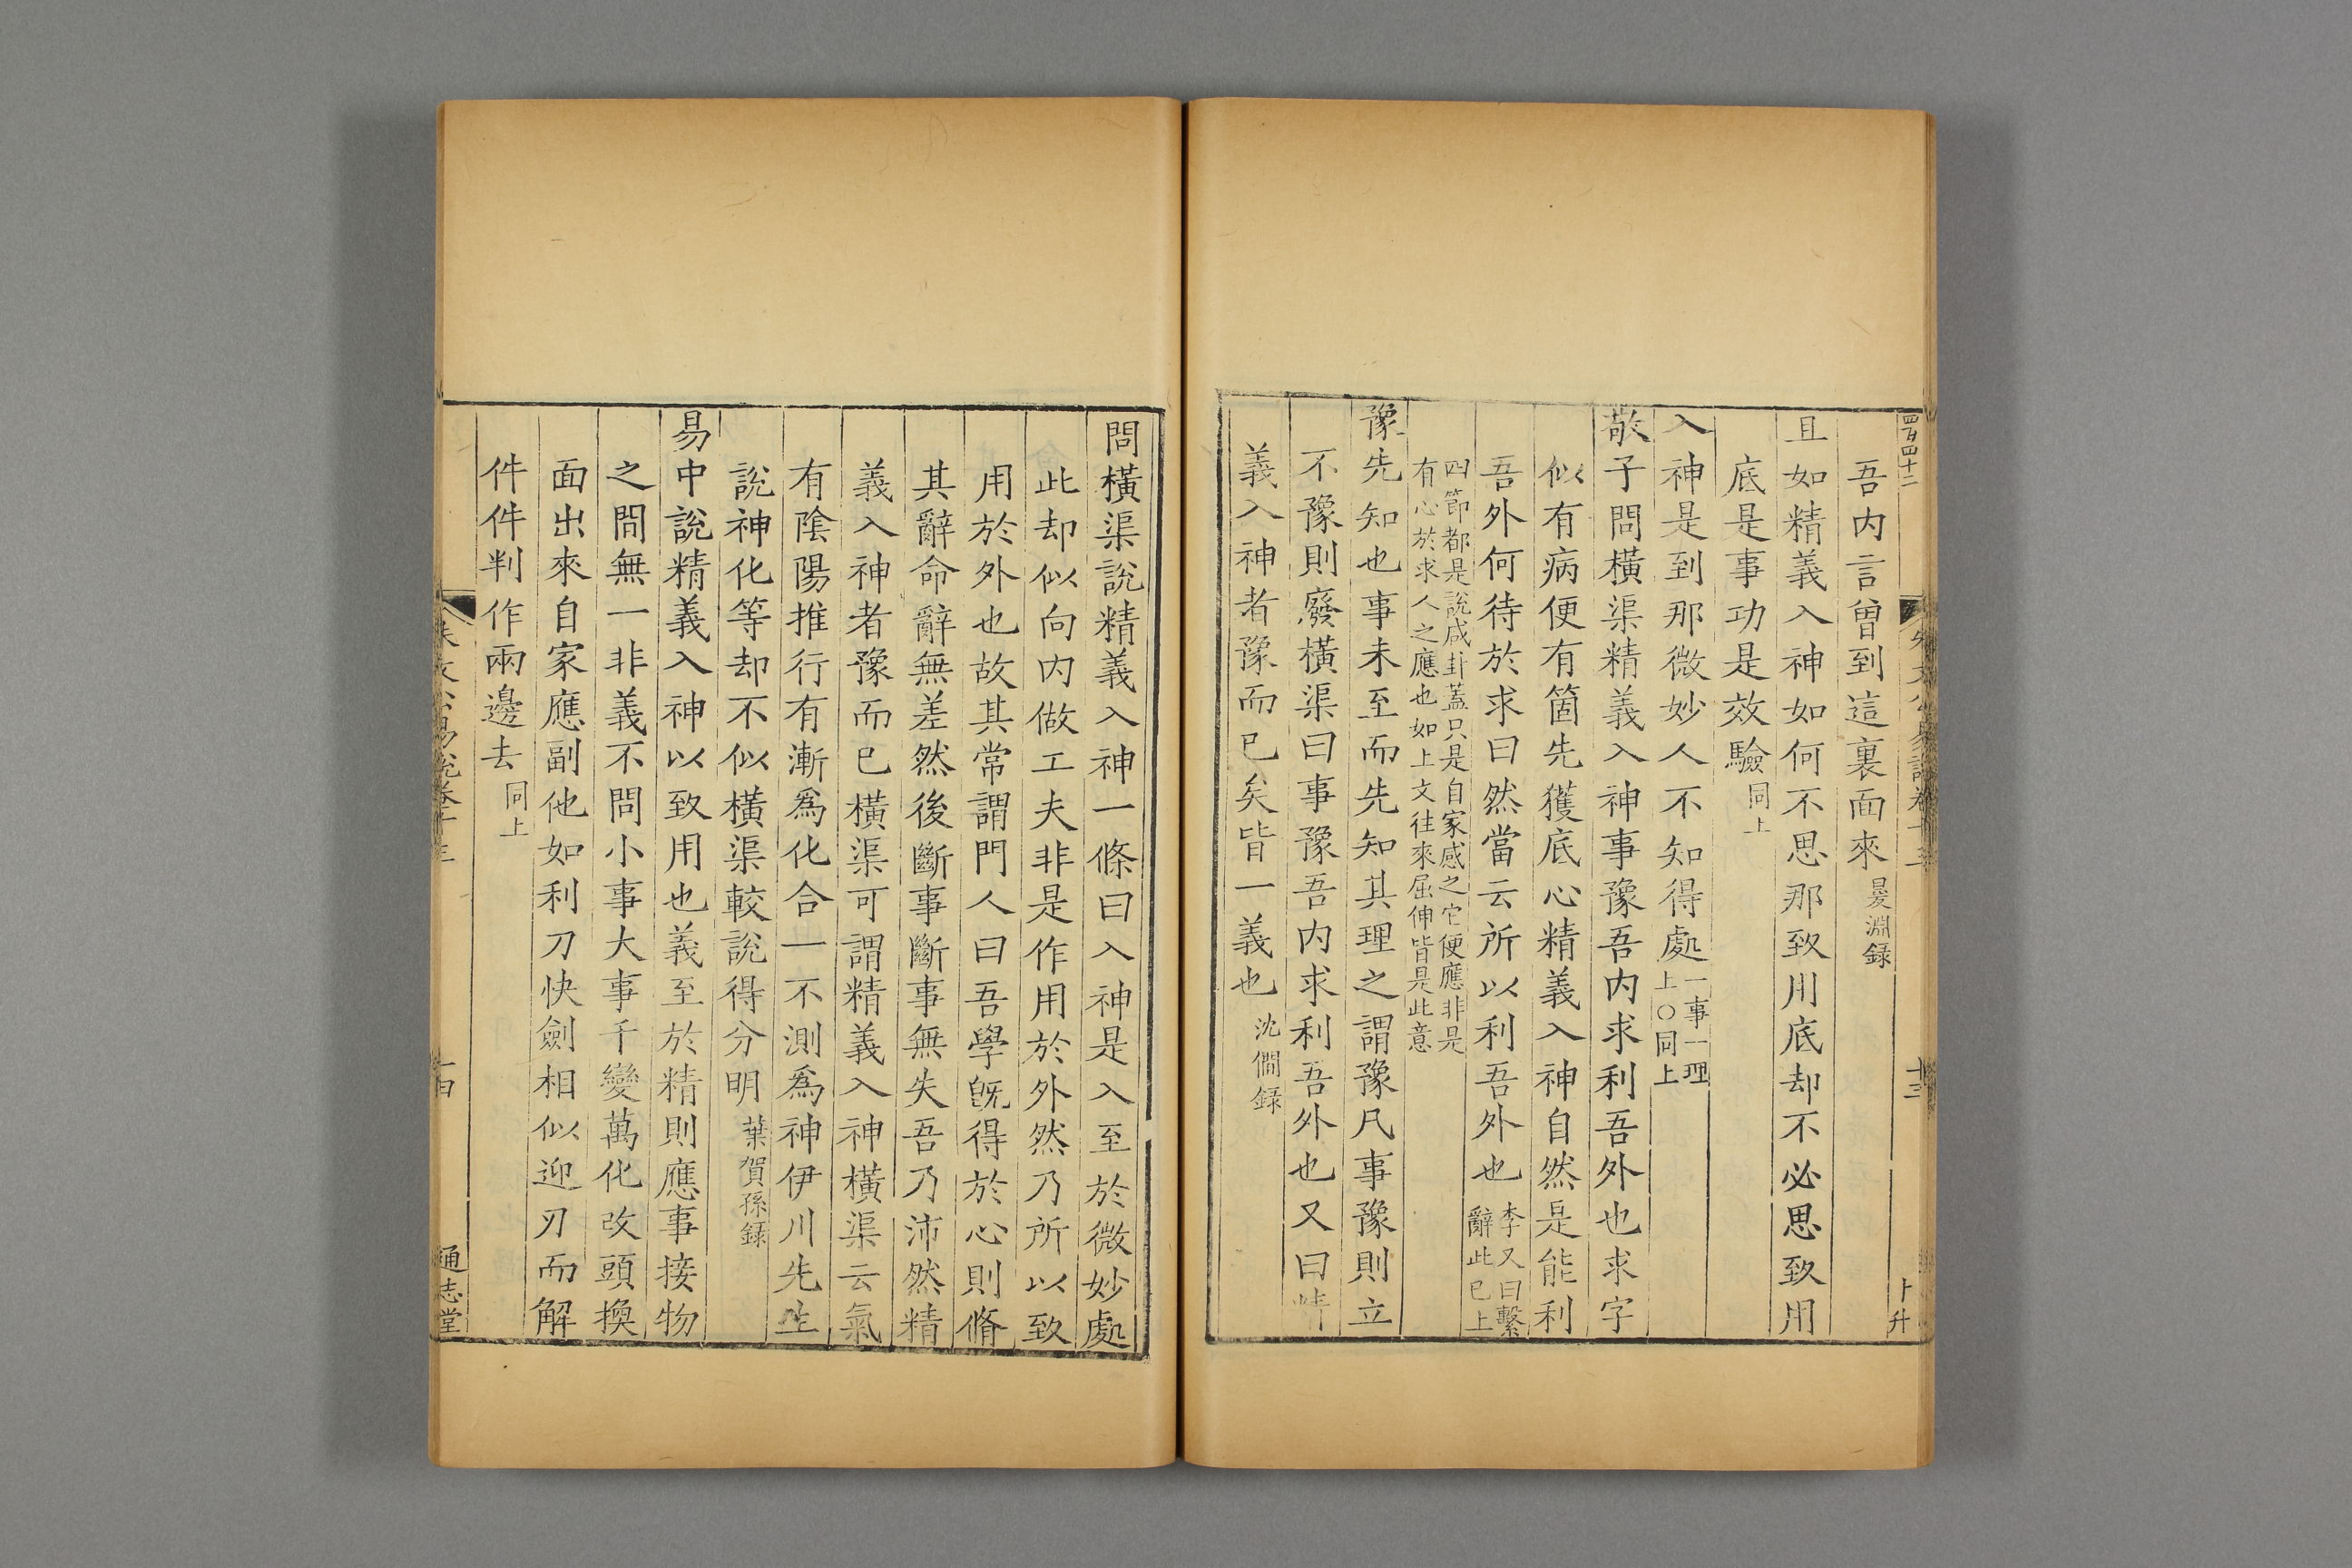 四百四十二
吾内言曽到這裏面來㬊淵録
且如精義入神如何不思那致用底却不必思致用
底是事功是效驗同上
入神是到那微妙人不知得處一事一理
上○同上
敬子問橫渠精義入神事豫吾内求利吾外也求字
似有病便有箇先獲底心精義入神自然是能利
吾外何待於求曰然當云所以利吾外也李又曰繫
辭此已上
四節都是說咸卦蓋只是自家感之它便應非是
有心於求人之應也如上文往來屈伸皆是此意
豫先知也事未至而先知其理之謂豫凡事豫則立
不豫則廢橫渠曰事豫吾内求利吾外也又曰精
義入神者豫而已矣皆一義也沈僩録
朱文公易說卷十三
十三
卜升
問橫渠說精義入神一條曰入神是入至於微妙處
此却似向内做工夫非是作用於外然乃所以致
用於外也故其常謂門人曰吾學旣得於心則脩
其辭命辭無差然後斷事斷事無失吾乃沛然精
義入神者豫而已橫渠可謂精義入神橫渠云氣
有陰陽推行有漸爲化合一不測爲神伊川先生
說神化等却不似橫渠較說得分明葉賀孫録
易中說精義入神以致用也義至於精則應事接物
之間無一非義不問小事大事千變萬化改頭換
面出來自家應副他如利刀快劍相似迎刃而解
件件判作兩邊去同上
朱文公易說卷十三
十四
通志堂